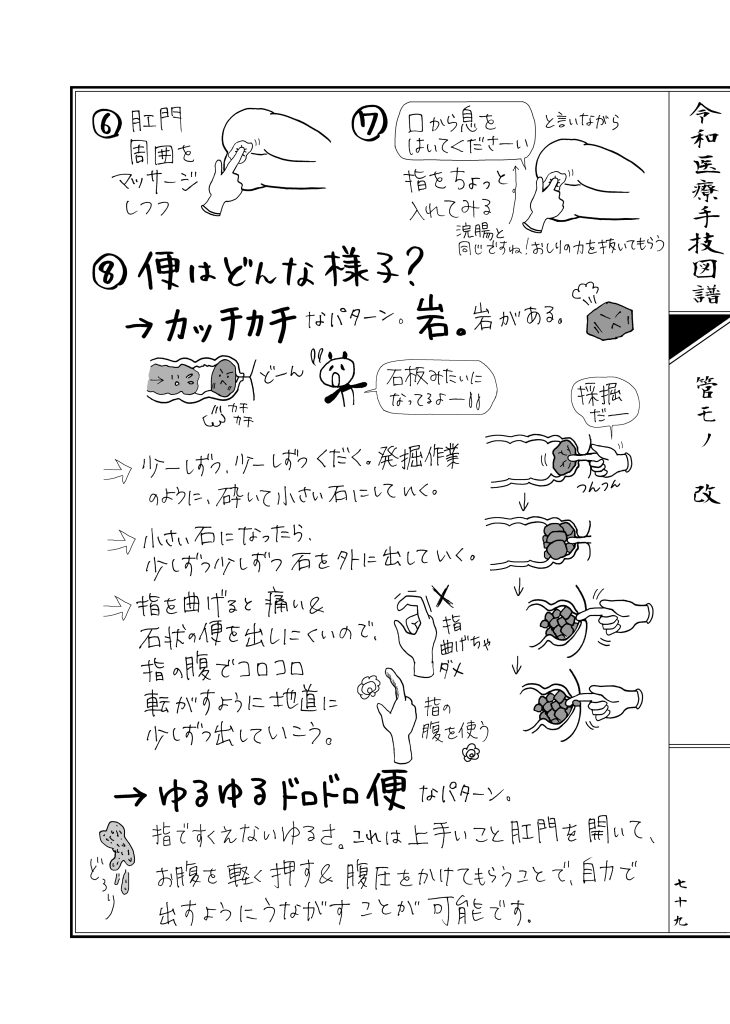 令和医療手技図譜
管モノ 改
七十九
⑥ 肛門
周囲を
マッサージ
しつつ
⑦
口から息を
はいてくださーい
と言いながら
指をちょっと
入れてみる
浣腸と
同じですね！おしりの力を抜いてもらう
⑧ 便はどんな様子？
→ カッチカチなパターン。岩。岩がある。
どーん
カチ
カチ
石板みたいに
なってるよー!!
採掘
だー
つんつん
⇒ 少ーしずつ、少ーしずつくだく。発掘作業
のように、砕いて小さい石にしていく。
⇒ 小さい石になったら、
少しずつ少しずつ石を外に出していく。
⇒ 指を曲げると痛い＆
石状の便を出しにくいので、
指の腹でコロコロ
転がすように地道に
少しずつ出していこう。
×
指
曲げちゃ
ダメ
指の
腹を使う
→ ゆるゆるドロドロ便なパターン。
指ですくえないゆるさ。これは上手いこと肛門を開いて、
お腹を軽く押す＆腹圧をかけてもらうことで、自力で
出すようにうながすことが可能です。
どろり